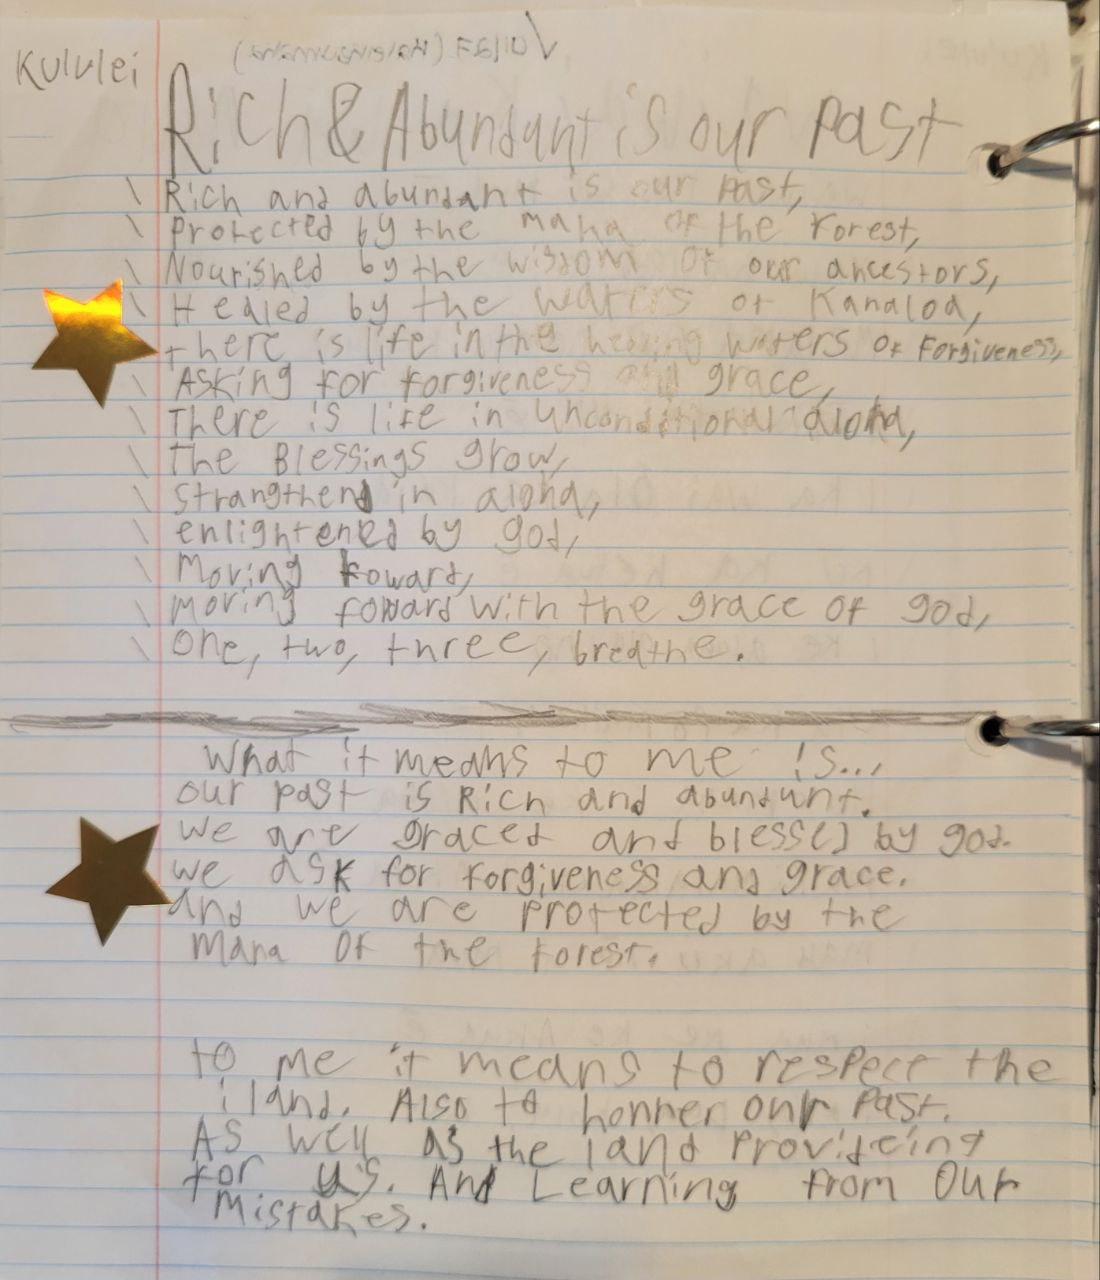 Kululei
Rich & Abundant is our past
Rich and abundant is our past,
Protected by the mana of the Forest,
Nourished by the wisdom of our ancestors,
Healed by the waters of Kanaloa,
there is life in the healing waters of Forgiveness,
Asking for forgiveness and grace,
There is life in unconditional aloha,
The Blessings grow,
strangthend in aloha,
enlightened by god,
Moving foward,
moving foward with the grace of god,
One, two, three, breathe.
What it means to me is...
our past is Rich and abundunt.
we are graced and blessed by god.
we ask for forgiveness and grace.
and we are protected by the
mana of the forest.
to me it means to respect the
iland. Also to honner our Past.
As well as the land Provideing
for us. And Learning from Our
Mistakes.